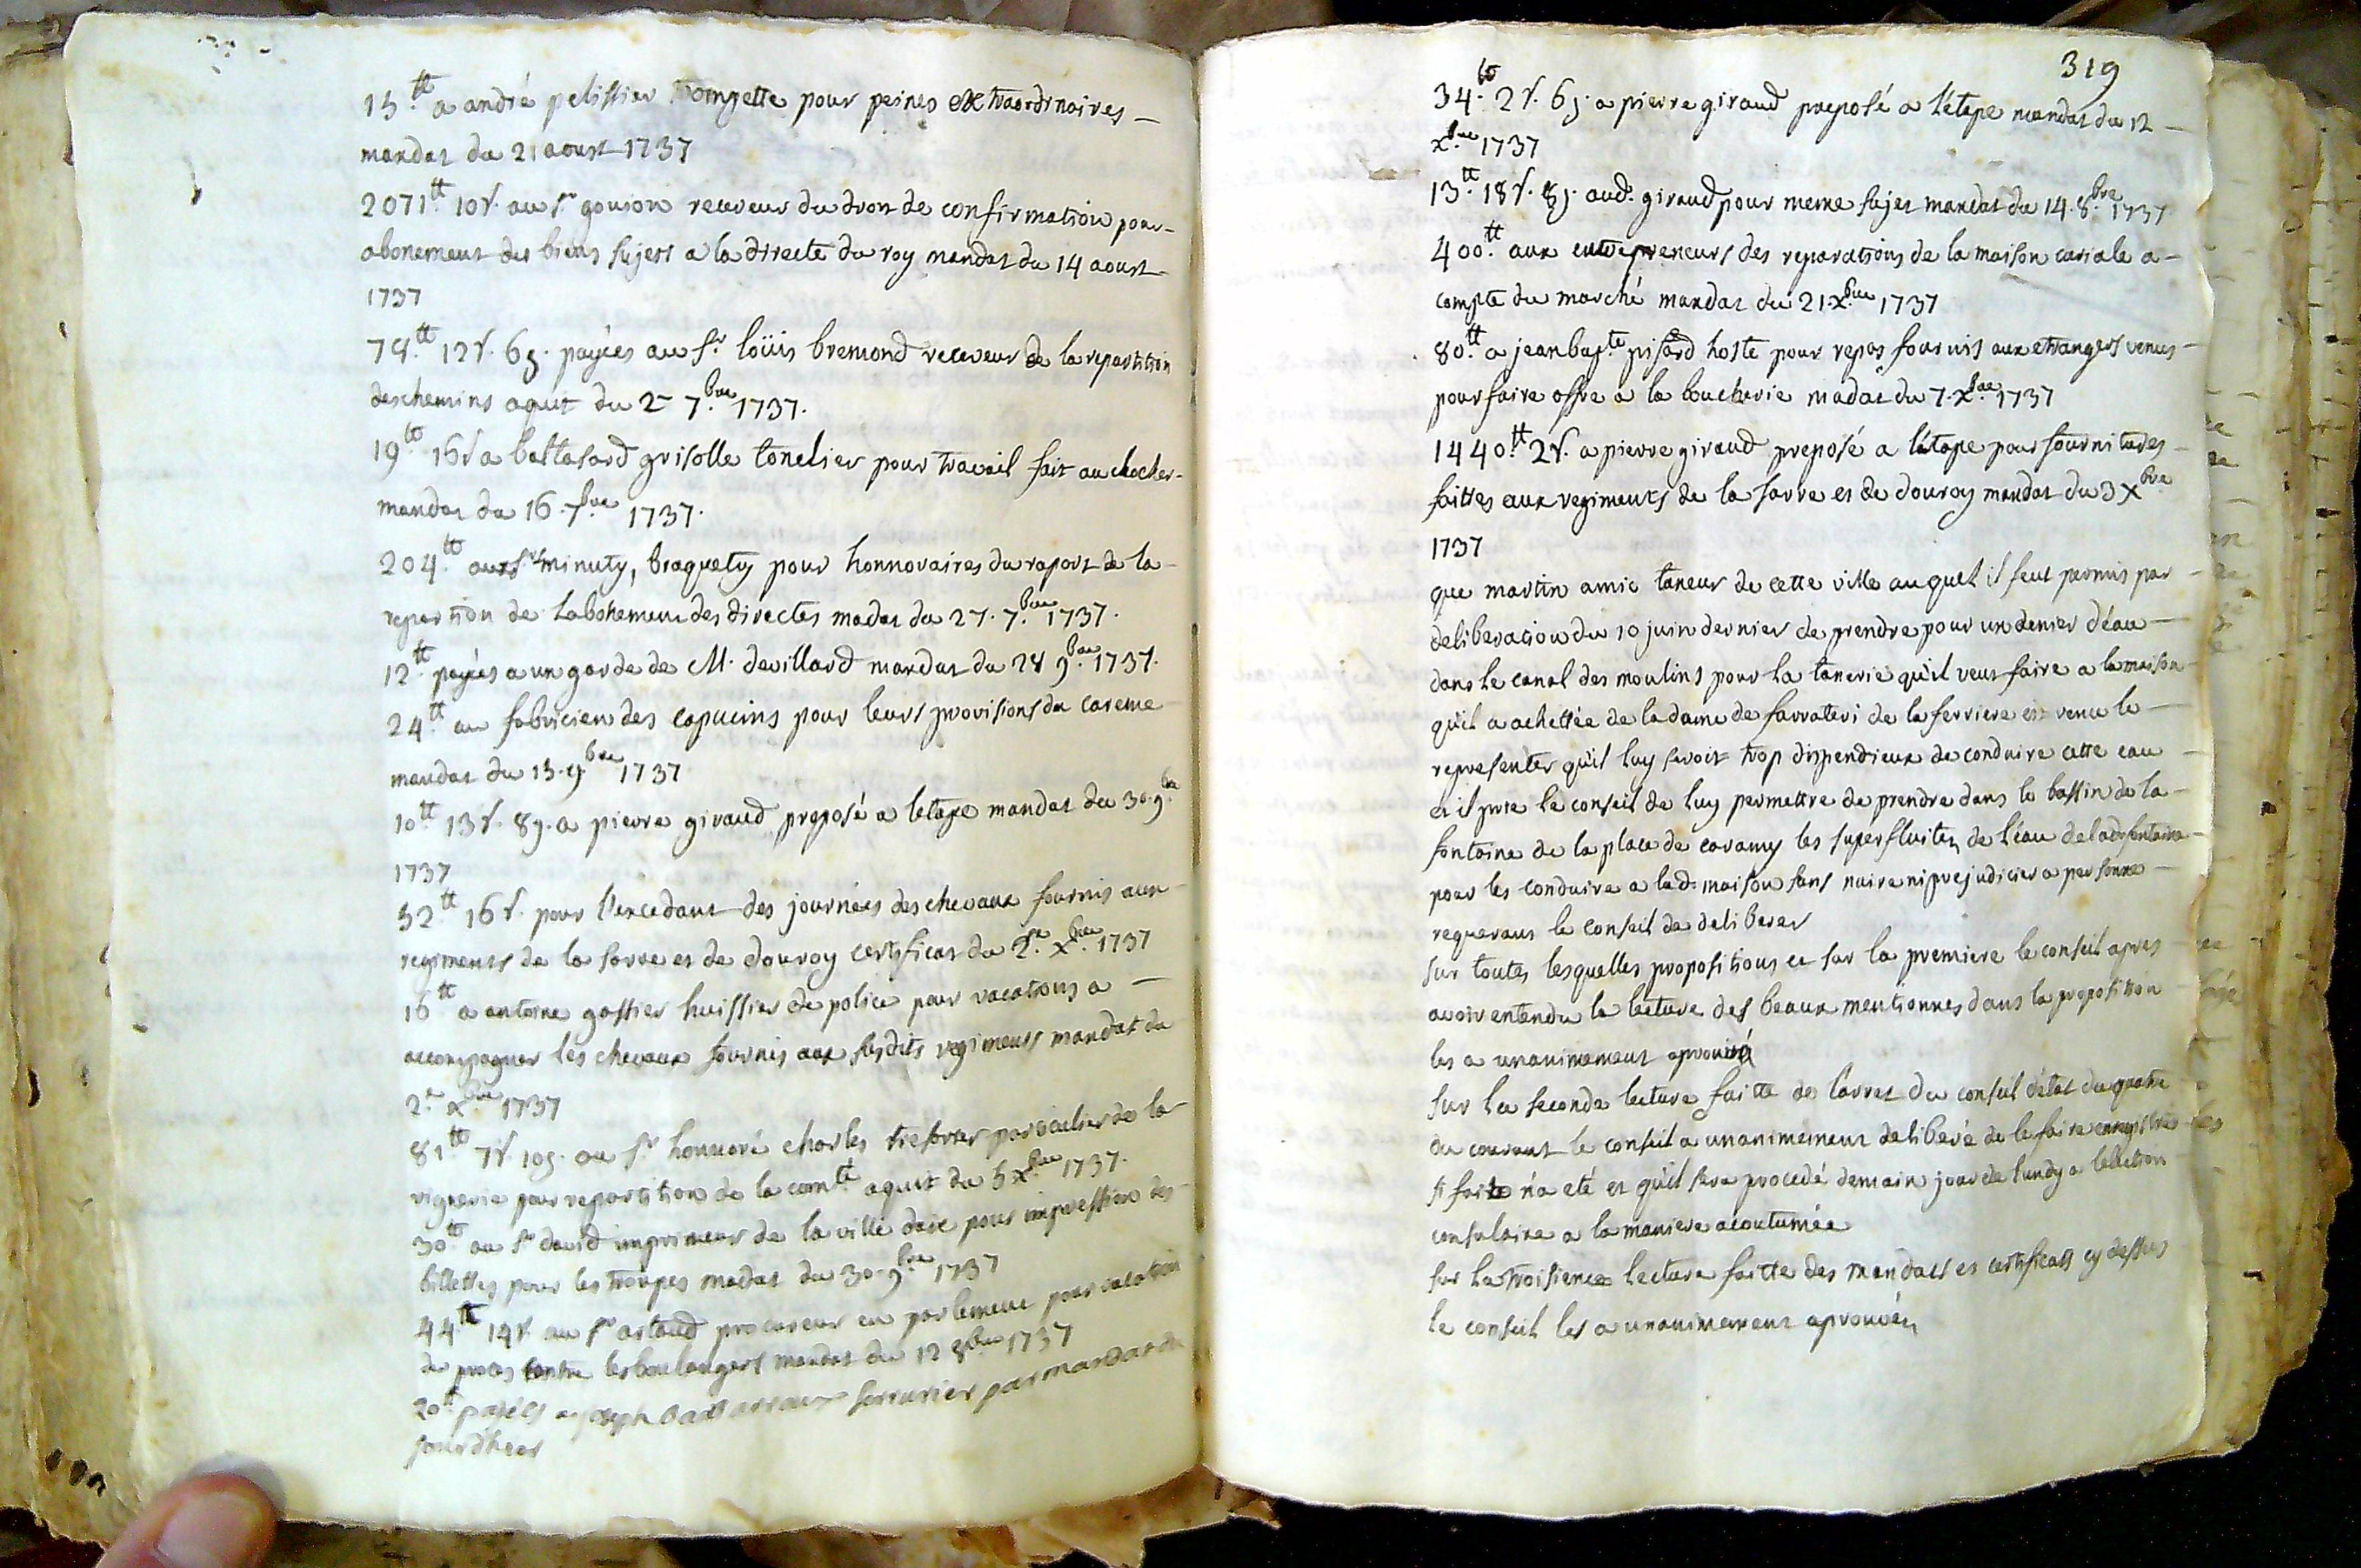 15.tt a andré pelissier trompette pour peines extraordinaires
mandat du 21 aoust 1737
2071.tt 10s. au sr goujon receveur du droit de confirmation pour
abonement des biens sujets a la directe du roy mandat du 14 aoust
1737
78.tt 12s. 6d. payées au sr. loüis bremond receveur de la repartition
des chemins aquit du 2 7.bre 1737.
19.tt 16s a baltasard grisolle tonelier pour travail fait au clocher
mandat du 16. 7bre 1737.
204.tt aux srs minuty, braquety pour honnoraires du raport de la
repartion de labonement des directes madat du 27. 7.bre 1737.
12.tt payées a un garde de M. devillard mandat du 28 9.bre 1737.
24.tt au fabricien des capucins pour leurs provisions du careme
mandat du 15. 9.bre 1737
10.tt 13s. 8d. a pierre giraud preposé a letape mandat du 30. 9.bre
1737
52.tt 16s. pour l'excedant des journées des chevaux fournis aux
regiments de la sarre et de douroy certificat du 2.e x.bre 1737
16.tt a antoine gassier huissier de police pour vacations a
accompagner les chevaux fournis aux susdits regiments mandat du
2.e x.bre 1737
81.tt 7s. 10d. au sr honnoré charles tresorier particulier de la
viguerie pour repartition de la com.té aquit du 5 x.bre 1737.
30.tt au sr david imprimeur de la ville daix pour impression des
billettes pour les troupes madat du 30. 9.bre 1737
44.tt 14s. au sr artaud procureur en parlement pour
de proces contre les boulangers mandat du 12 8bre 1737
20.tt payées a joseph barbarroux serrurier par mandat du
jourd'huer
319
34.tt 2s. 6d. a pierre giraud preposé a l'étape mandat du 12
x.bre 1737
13.tt 18s. 8d. aud. giraud pour meme sujet mandat du 14. 8.bre 1737
400.tt aux entrepreneurs des reparations de la maison curiale a
compte du marché mandat du 21 x.bre 1737
80.tt a jean bap.te pisard hoste pour repas fournis aux etrangers venus
pour faire offre a la boucherie madat du 7. x.bre 1737
1440.tt 2s. a pierre giraud preposé a l'étape pour fournitures
faittes aux regiments de la sarre et de douroy mandat du 3 x bre
1737
que martin amic taneur de cette ville auquel il feut permis par
deliberation du 10 juin dernier de prendre pour un denier d'éau
dans le canal des moulins pour la tanerie qu'il veut faire a la maison
qu'il a achettée de la dame de farrateri de la ferriere est venu le
representer qu'il luy seroit trop dispendieux de conduire cette eau
et il prie le conseil de luy permettre de prendre dans le bassin de la
fontaine de la place de caramy les superfluites de l'éau de lad. fontaine
pour les conduire a lad. maison sans nuire ni prejudicier a personne
requerant le conseil de deliberer
sur toutes lesquelles propositions et sur la premiere le conseil apres
avoir entendu la lecture des beaux mentionnes dans la proposition
les a unanimement aprouvé
sur la seconde lecture faitte de l'arret du conseil d'état du quatre
du courant le conseil a unanimement deliberé de le faire enregistrer
si fait n'a eté et qu'il sera procedé demain jour de lundy a lelection
consulaire a la maniere acoutumée
sur la troisieme lecture faitte des mandats et certificats cy dessus
le conseil les a unanimement aprouvés